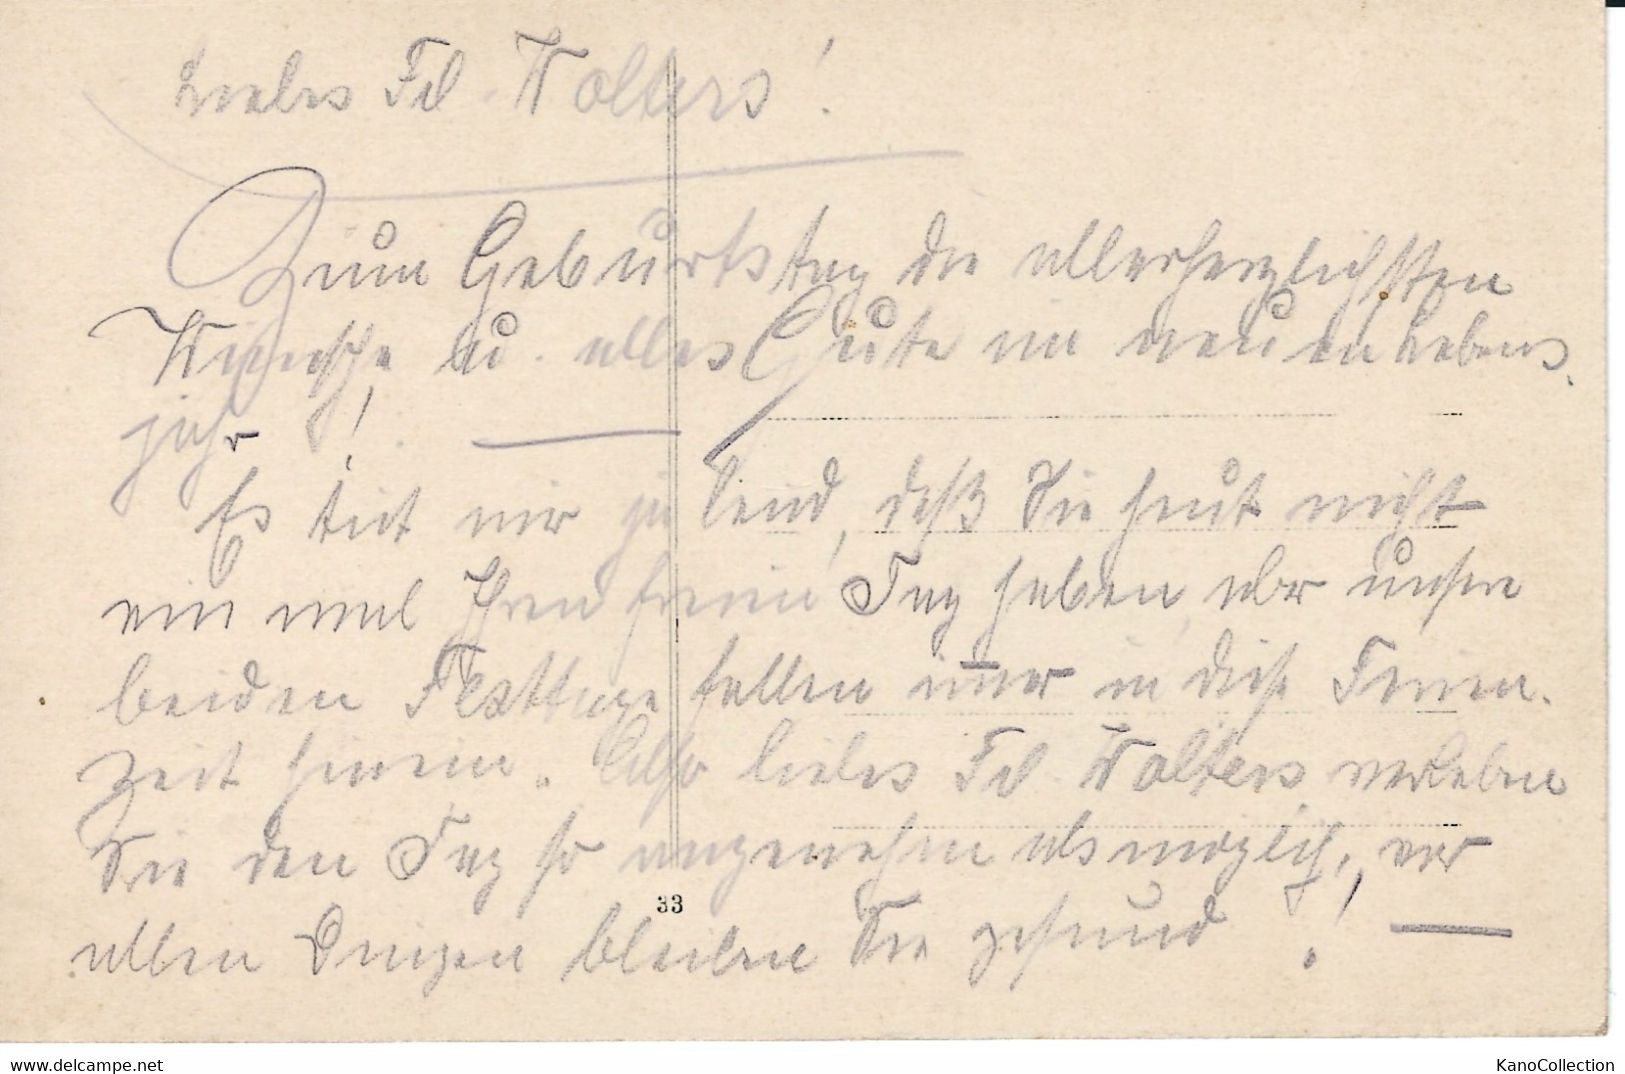 Liebes Frl. Wolters!
Zum Geburtstag die allerherzlichsten
Wünsche u. alles Gute im neuen Lebens-
jahr!
Es tut mir zu leid, daß Sie heut nicht
ein mal Ihren freien Tag haben, aber unsere
beiden Festtage fallen immer in diese Ferien-
zeit hinein. Also liebes Frl Wolters verleben
Sie den Tag so angenehm als möglich, vor
allen Dingen bleiben Sie gesund!
33
delcampe.net
KanoCollection